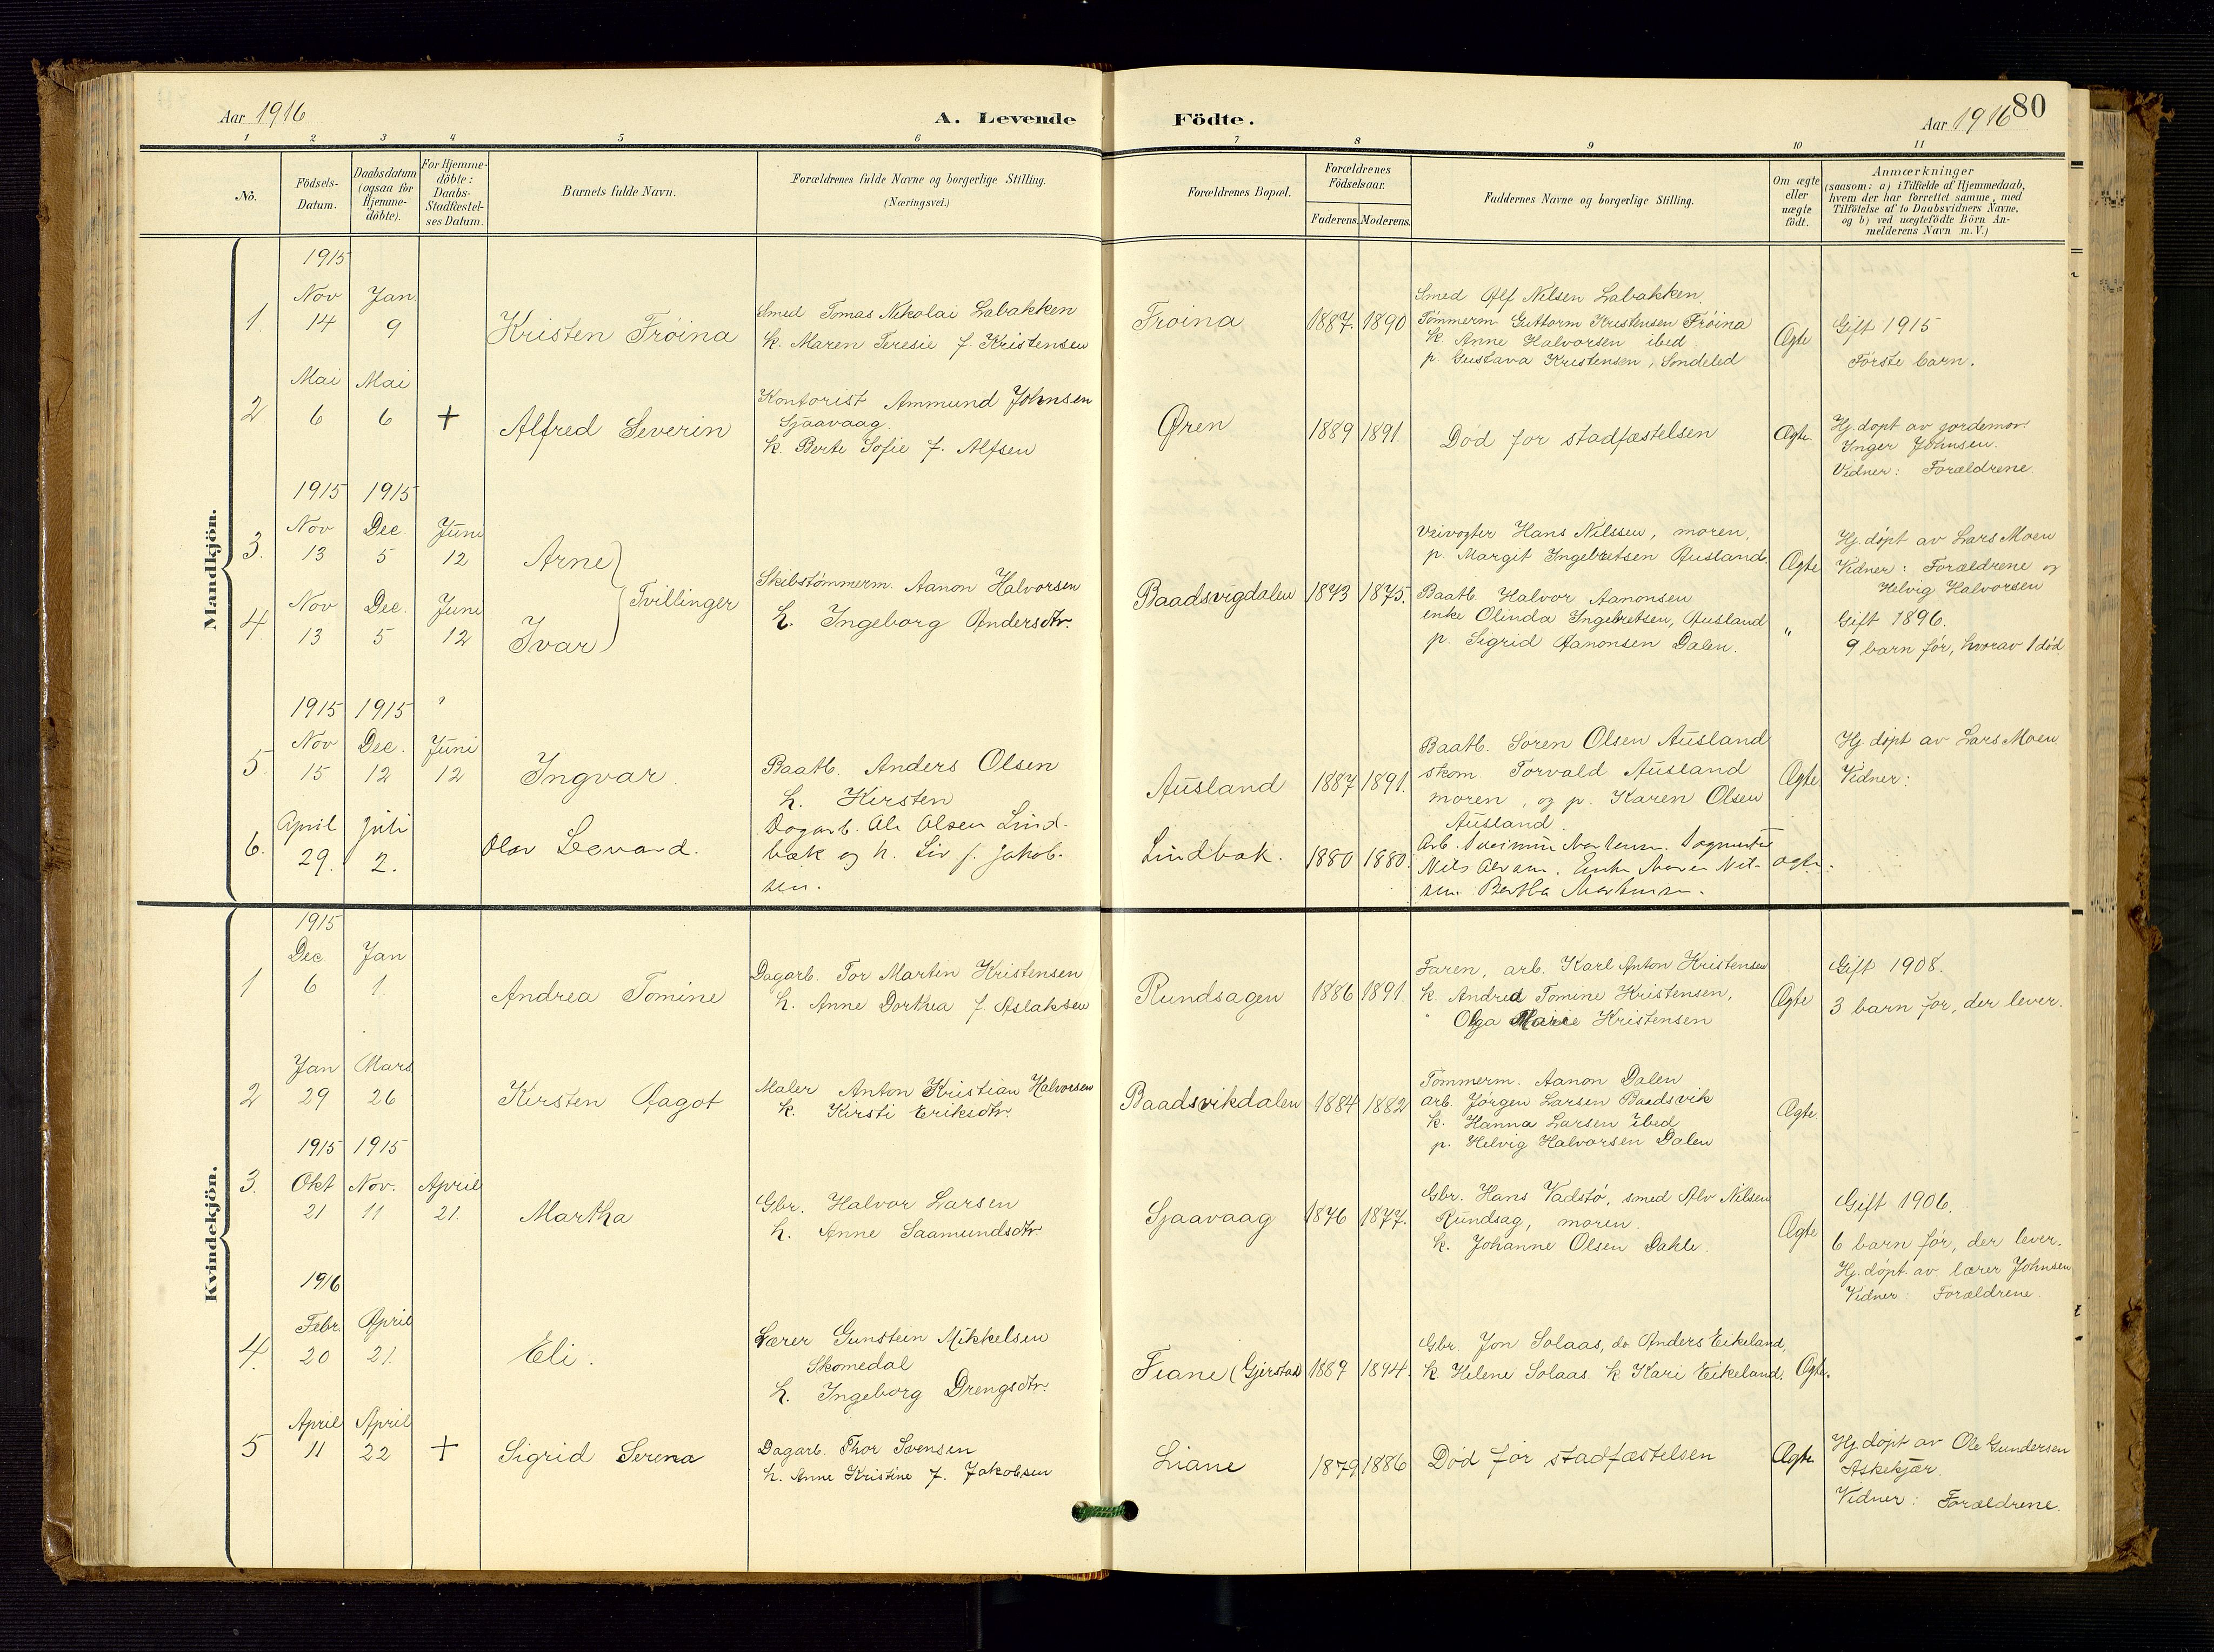 Aar 1916
A. Levende
Födte.
Aar 1916
80
1 2 3 4 5 6 7 8 9 10 11
No.
Födsels-Datum.
Daabsdatum (ogsaa for Hjemme-döbte).
For Hjemme-döbte: Daabs-Stadfæstel-ses Datum.
Barnets fulde Navn.
Forældrenes fulde Navne og borgerlige Stilling.
(Næringsvei.)
Forældrenes Bopæl.
Forældrenes Födselsaar.
Faderens. Moderens.
Faddernes Navne og borgerlige Stilling.
Om ægte eller uægte födt.
Anmærkninger
(saasom: a) i Tilfælde af Hjemmedaab,
hvem der har forrettet samme, med
Tilföielse af to Daabsvidners Navne,
og b) ved uægtefödte Börn An-
melderens Navn m. V.)
Mandkjön.
1915
1. Nov 14
Jan. 9
Kristen Frøina
Smed Tomas Nikolai Labakken
k. Maren Teresie f. Kristensen
Frøina
1887. 1890
Smed Alf Nilsen Labakken.
Tømmerm. Guttorm Kristensen Frøina
k. Anne Halvorsen ibed.
p. Gustava Kristensen, Søndeled
Ægte
Gift 1915
Første barn.
2 Mai 6
Mai 6
+
Alfred Severin
Kontorist Ammund Johnsen
Sjaavaag.
k. Berte Sofie f. Alfsen
Øren
1889 1891.
Død før stadfæstelsen
Ægte.
Hj. døpt av jordemor
Inger Johnsen.
Vidner: Forældrene.
1915 1915
3. Nov 13
Dec. 5
Juni 12
Arne
Tvillinger
4 Nov 13
Dec. 5
Juni 12
Ivar
Skibstømmerm. Aanon Halvorsen
h. Ingeborg Andersdtr.
Baadsvigdalen
1873 1875.
Veivogter Hans Nilssen, moren,
p. Margit Ingebretsen Ausland.
Baatb. Halvor Aanonsen
enke Olinda Ingebretsen, Ausland
p. Sigrid Aanonsen Dalen.
Ægte
"
Hj. døpt av Lars Moen
Vidner: Forældrene og
Helvig Halvorsen
Gift 1896.
9 barn før, hvorav 1 død.
1915 1915
5. Nov 15
Dec. 12
Juni 12
Ingvar.
Baatb. Anders Olsen
h. Kirsten
Ausland
1887 1891.
Baatb. Søren Olsen Ausland
skom. Torvald Ausland
moren, og p. Karen Olsen
Ausland.
Ægte
Hj. døpt av Lars Moen
Vidner:
6. April 29.
Juli 2.
Olav Leevard.
Dagarb. Ole Olsen Lind-
bæk og h. Liv f. Jakob-
sen.
Lindbæk.
1880 1880.
Nils
Bertha
ægte.
Kvindekjön.
1915
1 Dec 6
Jan 1.
Andrea Tomine
Dagarb. Tor Martin Kristensen
h. Anne Dorthea f. Aslaksen
Rundsagen
1886 1891.
Faren, arb. Karl Anton Kristensen
k. Andrea Tomine Kristensen,
" Olga Marie Kristensen
Ægte
Gift 1908.
3 barn før, der lever.
2 Jan 29
Mars 26
Kirsten Aagot
Maler Anton Kristian Halvorsen
k. Kirsti Eriksdtr.
Baadsvikdalen
1884 1882
Tømmerm. Aanon Dalen
arb. Jørgen Larsen Baadsvik
k. Hanna Larsen ibed
p. Helvig Halvorsen Dalen
Ægte.
1915 1915
3. Okt 21
Nov. 11
April 21.
Martha
Gbr. Halvor Larsen
h. Anne Saamundsdtr.
Sjaavaag
1876 1877.
Gbr. Hans Vadstø, smed Alv Nilsen
Rundsag, moren.
k. Johanne Olsen Dahle.
Ægte
Gift 1906.
6 barn før, der lever.
Hj. døpt. av. lærer Johnsen
Vidner: Forældrene.
1916
4. Febr. 20
April 21.
Eli.
Lærer Gunstein Mikkelsen
Skomedal
h. Ingeborg Drengsdtr.
Fiane (Gjerstad)
1889 1894.
Gbr. Jon Solaas, do Anders Eikeland,
k. Helene Solaas. k. Kari Eikeland.
Ægte.
5 April 11
April 22
+
Sigrid Serena
Dagarb. Thor Svensen
h. Anne Kristine f. Jakobsen
Liane
1879 1886
Død før stadfæstelsen
Ægte
Hj. døpt av Ole Gundersen
Askekjær.
Vidner: Forældrene.